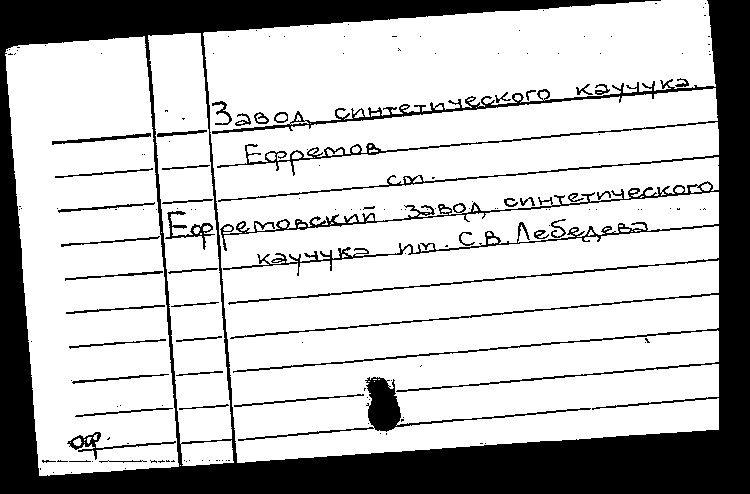 Завод синтетического каучука.
Ефремов
см.
Ефремовский завод синтетического
каучука им. С.В. Лебедева
оф.